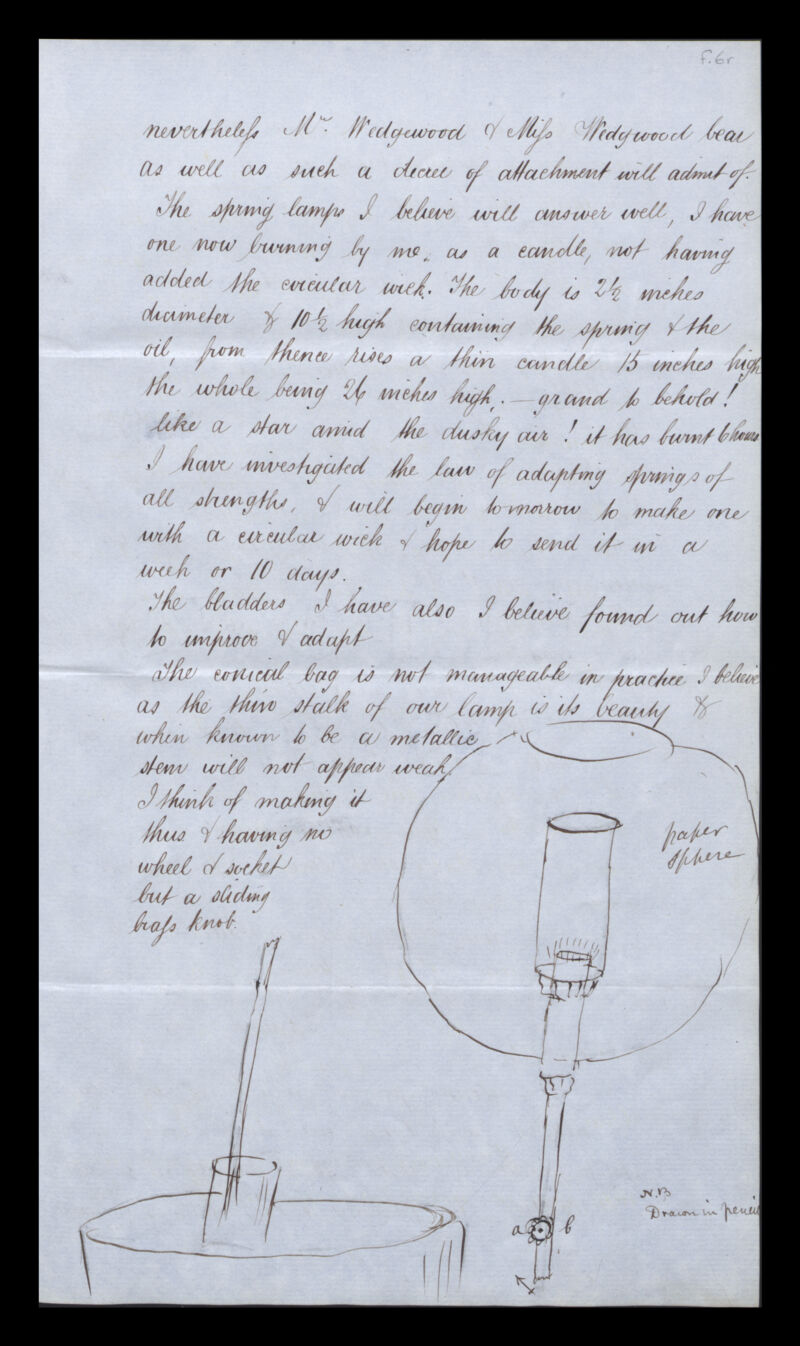 f. 6r
nevertheless Mr. Wedgwood & Miss Wedgwood bear
as well as such a decree of attachment will admit of.
The spring lamps I believe will answer well, I have
one now burning by me, as a candle, not having
added the circular wick. The body is 2½ inches
diameter & 10½ high containing the spring & the
oil, from thence rises a thin candle 15 inches high
the whole being 26 inches high. — grand to behold!
like a star amid the dusky air! it has burnt 6 hours
I have investigated the law of adapting springs of
all strengths, & will begin tomorrow to make one
with a circular wick & hope to send it in a
week or 10 days.
The bladders I have also I believe found out how
to improve & adapt
The conical bag is not manageable in practice I believe
as the thin stalk of our lamp is its beauty &
when known to be a metallic
stem will not appear weak.
I think of making it
thus & having no
wheel & socket
but a sliding
brass knob.
paper
sphere
N.B
Drawn in pencil
a b